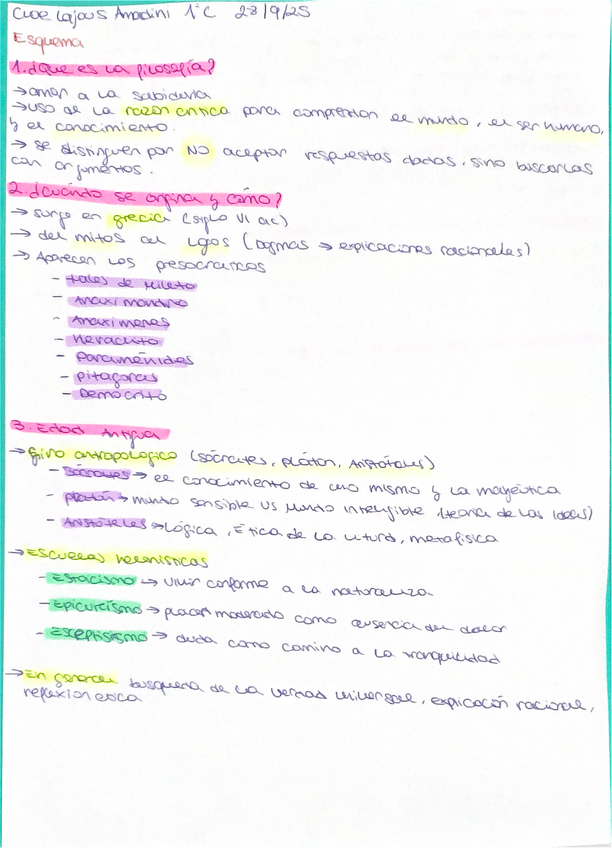 Cloe Lajous Amadini 1ºC 28/9/25
Esquema
1. ¿Que es la filosofía?
→ amor a la sabiduría
→ uso de la razon critica para comprension el mundo, el ser humano,
y el conocimiento.
→ se distinguen por NO aceptar respuestas dadas, sino buscarlas
con argumentos.
2. ¿Cuándo se origina y cómo?
→ surge en grecia (siglo VI a.c)
→ del mitos al logos (Dogmas → explicaciones racionales)
→ Aparecen los presocraticos
- tales de Mileto
- Anaximandro
- Anaximenes
- Heraclito
- Paraménides
- pitagoras
- Demócrito
3. Edad Antigua
→ Giro antropologico (sócrates, platón, Aristóteles)
- Sócrates → el conocimiento de uno mismo y la mayéutica
- platón → mundo sensible vs Mundo inteligible (teoria de las Ideas)
- Aristóteles → Lógica, Ética de la , metafisica
→ Escuelas helenisticas
- Estoicismo → vivir conforme a la naturaleza
- Epicureísmo → placer moderado como ausencia del dolor
- Esceptisismo → duda como camino a la tranquilidad
→ En general busqueda de la verdad universal, explicación racional,
reflexion etica